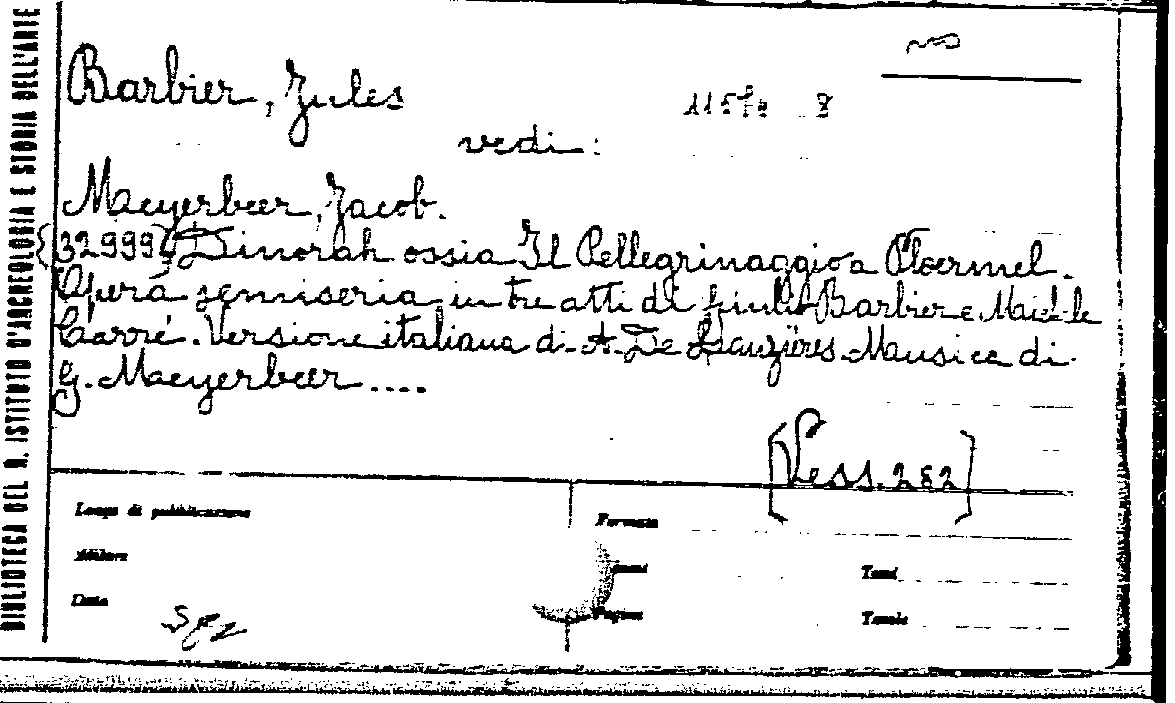 BIBLIOTECA DEL R. ISTITUTO D'ARCHEOLOGIA E STORIA DELL'ARTE
Barbier, Jules
vedi:
Maeyerbeer, Jacob.
32999 Dinorah ossia Il Pellegrinaggio a Ploermel.
Opera semiseria in tre atti di Barbier e
Carré. Versione italiana di A. De Lauzières. Mausica di
G. Maeyerbeer ....
[Vess. 282]
Luogo di pubblicazione
Formato
Editore
Tomi
Data
Pagine
Tavole